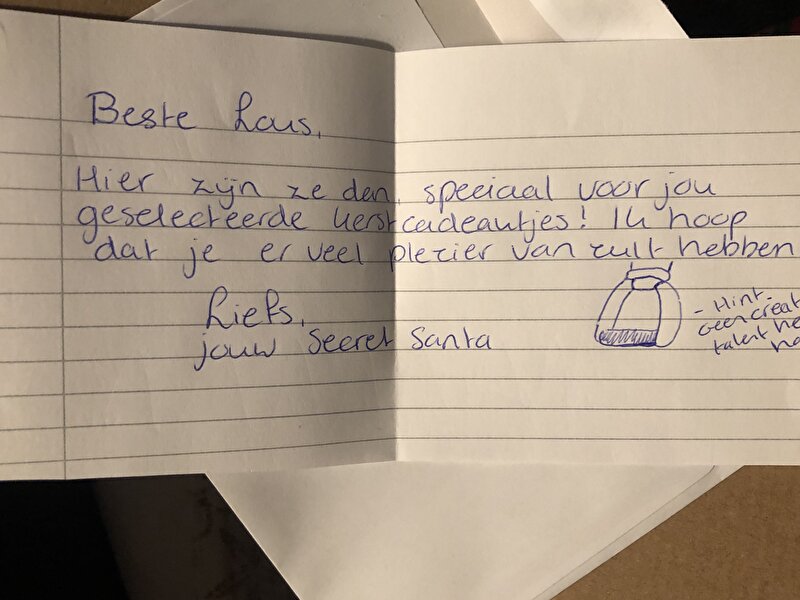 Beste Lous,
Hier zijn ze dan, speciaal voor jou
geselecteerde kerstcadeautjes! Ik hoop
dat je er veel plezier van zult hebben
Liefs,
jouw Secret Santa
- Hint
Geen creat
talent he